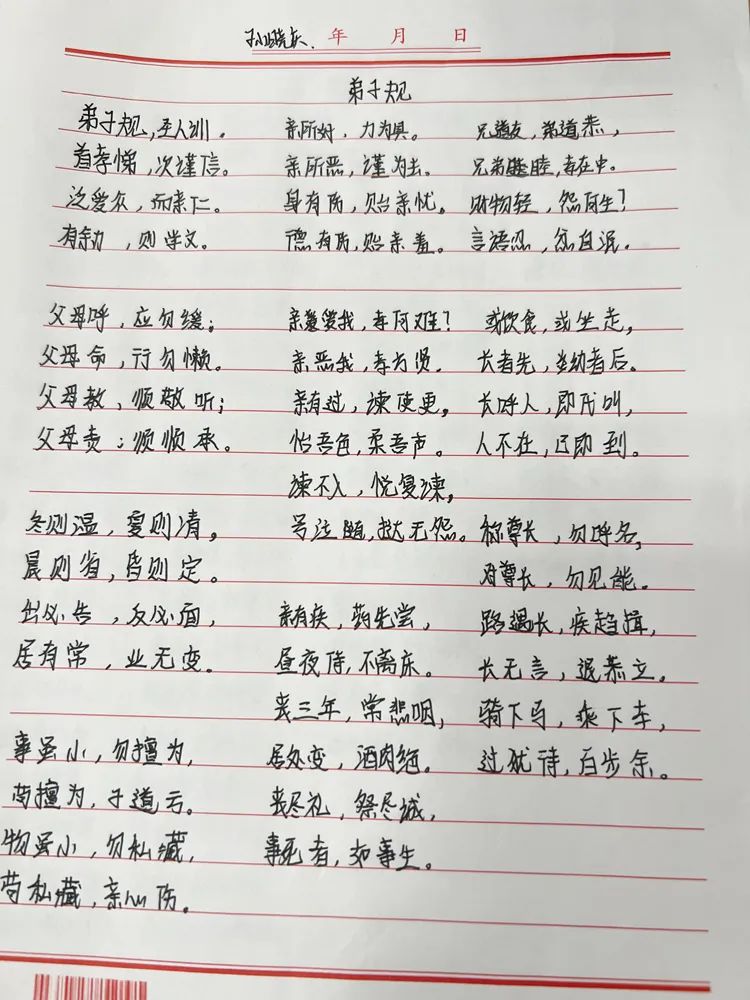 年 月 日
弟子规
弟子规,圣人训。
首孝悌,次谨信。
泛爱众,而亲仁。
有余力,则学文。
父母呼,应勿缓;
父母命,行勿懒。
父母教、顺敬听;
父母责;须顺承。
冬则温,夏则清,
晨则省,昏则定。
出必告,反必面,
居有常,业无变。
事虽小,勿擅为,
苟擅为,子道亏。
物虽小,勿私藏,
苟私藏,亲心伤。
亲所好,力为具。
亲所恶,谨为去。
身有伤,贻亲忧。
德有伤,贻亲羞。
亲爱我,孝何难?
亲恶我,孝方贤.
亲有过,谏使更。
怡吾色,柔吾声。
谏不入,悦复谏,
号泣随,挞无怨。
亲有疾,药先尝,
昼夜侍,不离床。
丧三年,常悲咽,
居处变,酒肉绝。
丧尽礼,祭尽诚,
事死者,如事生。
兄道友,弟道恭,
兄弟睦,孝在中。
财物轻,怨何生?
言语忍,忿自泯.
或饮食,或坐走,
长者先,幼者后。
长呼人,即代叫,
人不在,己即到。
称尊长,勿呼名,
对尊长,勿见能。
路遇长,疾趋揖,
长无言,退恭立。
骑下马,乘下车,
过犹待,百步余。